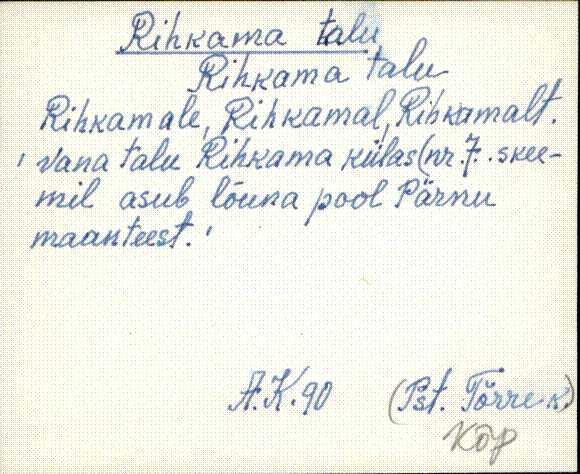 Rihkama talu
Rihkama talu
Rihkamale, Rihkamal, Rihkamalt.
' Vana talu Rihkama külas (nr. 7. skee-
mil asub lõuna pool Pärnu
maanteest.'
A.K. 90 (Pst. Tõrre k.)
Kõp